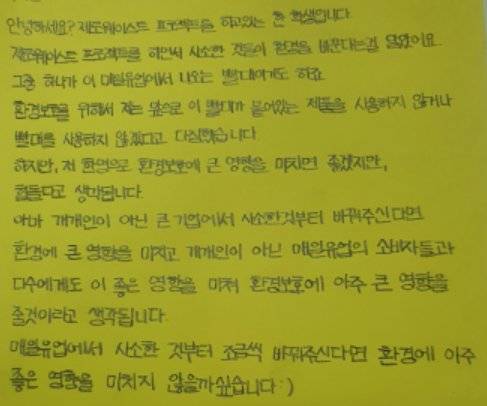 안녕하세요? 제로웨이스트 프로젝트를 하고있는 한 학생입니다.
제로웨이스트 프로젝트를 하면서 사소한 것들이 환경을 바꾼다는걸 알았어요.
그중 하나가 이 매일유업에서 나오는 빨대이기도 하죠.
환경보호를 위해서 저는 앞으로 이 빨대가 붙어있는 제품을 사용하지 않거나
빨대를 사용하지 않겠다고 다짐했습니다.
하지만, 저 한명으로 환경보호에 큰 영향을 미치면 좋겠지만,
힘들다고 생각됩니다.
아마 개개인이 아닌 큰 기업에서 사소한것부터 바꿔주신다면
환경에 큰 영향을 미치고 개개인이 아닌 매일유업의 소비자들과
다수에게도 이 좋은 영향을 미쳐 환경보호에 아주 큰 영향을
줄것이라고 생각됩니다.
매일유업에서 사소한 것부터 조금씩 바꿔주신다면 환경에 아주
좋은 영향을 미치지 않을까싶습니다:)